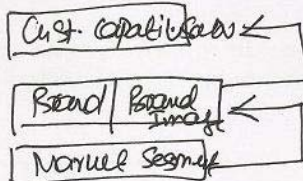 Cust. Capabilities
Brand Brand
Image
Market Segment